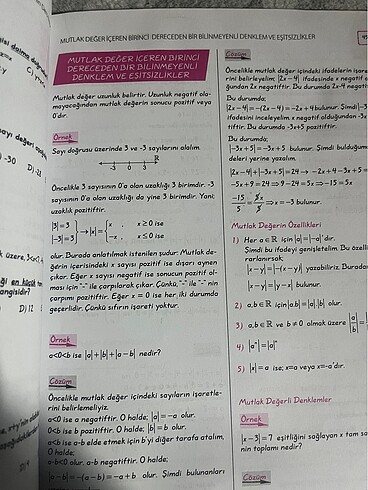 MUTLAK DEĞER İÇEREN BİRİNCİ DERECEDEN BİR BİLİNMEYENLİ DENKLEM VE EŞİTSİZLİKLER
MUTLAK DEĞER İÇEREN BİRİNCİ
DERECEDEN BİR BİLİNMEYENLİ
DENKLEM VE EŞİTSİZLİKLER
Mutlak değer uzunluk belirtir. Uzunluk negatif ol-
mayacağından mutlak değerin sonucu pozitif veya
0'dır.
Örnek
Sayı doğrusu üzerinde 3 ve -3 sayılarını alalım.
-3 0 3 ℝ
Öncelikle 3 sayısının 0'a olan uzaklığı 3 birimdir. -3
sayısının 0'a olan uzaklığı da yine 3 birimdir. Yani;
uzaklık pozitiftir.
|3|=3
|-3|=3 → |x|= { x , x≥0 ise
-x , x≤0 ise
olur. Burada anlatılmak istenilen şudur: Mutlak de-
ğerin içerisindeki x sayısı pozitif ise dışarı aynen
çıkar. Eğer x sayısı negatif ise sonucun pozitif ol-
ması için "-" ile çarpılarak çıkar. Çünkü, "-" ile "-"nin
çarpımı pozitiftir. Eğer x = 0 ise her iki durumda
geçerlidir. Çünkü sıfırın işareti yoktur.
Örnek
a<0<b ise |a|+|b|+|a-b| nedir?
Çözüm
Öncelikle mutlak değer içindeki sayıların işaretle-
rini belirlemeliyiz.
a<0 ise a negatiftir. O halde; |a|=-a olur.
0<b ise b pozitiftir. O halde; |b|=b olur.
a<b ise a-b elde etmek için b'yi diğer tarafa atalım,
O halde;
a-b<0 olur. a-b negatiftir. O halde;
|a-b|=-(a-b)=-a+b olur. Şimdi bulunanları
Çözüm
Öncelikle mutlak değer içindeki ifadelerin işare
rini belirleyelim; |2x-4| ifadesinde x negatif o
ğundan 2x negatiftir. Bu durumda 2x-4 negatif
Bu durumda;
|2x-4|=-(2x-4)=-2x+4 bulunur. Şimdi |-3
ifadesini inceleyelim. x negatif olduğundan -3x
tiftir. Bu durumda -3x+5 pozitiftir.
Bu durumda;
|-3x+5|=-3x+5 bulunur. Şimdi bulduğum
deleri yerine yazalım.
|2x-4|+|-3x+5|=24 → -2x+4-3x+5=
-5x+9=24 ⇒ 9-24=5x ⇒ -15=5x
-15/5 = 5x/5 ⇒ x=-3 bulunur.
Mutlak Değerin Özellikleri
1) Her a∈ℝ için |a|=|-a|'dır.
Şimdi bu ifadeyi genişletelim. Bu özelli
rarlanırsak;
|x-y|=|-(x-y)| yazabiliriz. Burada
|x-y|=|y-x| bulunur.
2) a,b∈ℝ için |a.b|=|a|.|b| olur.
3) a,b∈ℝ ve b≠0 olmak üzere |a/b|=
4) |aⁿ|=|a|ⁿ
5) |x|=a ise; x=a veya x=-a'dır.
Mutlak Değerli Denklemler
Örnek
|x-3|=7 eşitliğini sağlayan x tam sa
nin toplamı nedir?
Çözüm